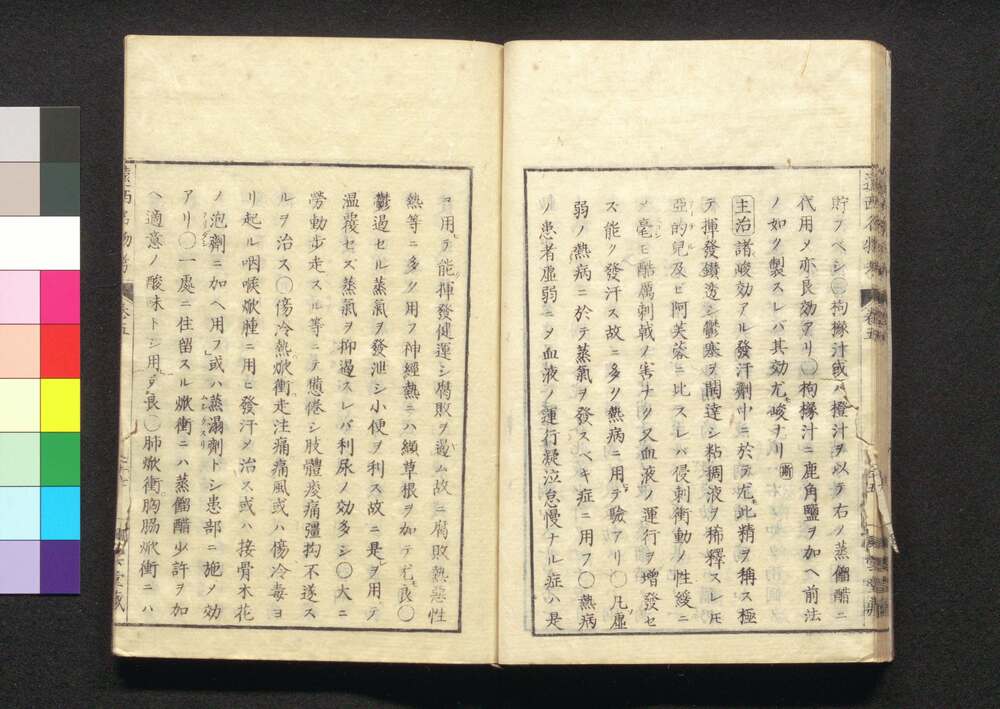 貯フベシ〇枸櫞汁或ハ橙汁ヲ以テ右ノ蒸餾醋ニ
代用メ亦良効アリ〇枸櫞汁ニ鹿角鹽ヲ加ヘ前法
ノ如ク製スレバ其効尤峻ナリ
主治諸峻効アル發汗劑中ニ於テ尤此精ヲ稱ス極
テ揮發鑚透シ鬱塞ヲ開達シ粘稠液ヲ稀釋スレ𪜈
亞的兒及ビ阿芙蓉ニ比スレバ侵刺衝動ノ性緩ニ
メ毫モ酷厲刺戟ノ害ナク又血液ノ運行ヲ增發セ
ズ能ク發汗ス故ニ多ク熱病ニ用テ驗アリ〇凡虛
弱ノ熱病ニ於テ蒸氣ヲ發スベキ症ニ用フ〇熱病
ノ患者虛弱ニメ血液ノ運行凝泣怠慢ナル症ハ是
ヲ用テ能揮發健運シ腐敗ヲ遏ム故ニ腐敗熱惡性
熱等ニ多ク用フ神經熱ニハ纈草根ヲ加テ尤良〇
鬱過セル蒸氣ヲ發泄シ小便ヲ利ス故ニ是ヲ用テ
温覆セズ蒸氣ヲ抑遏スレバ利尿ノ効多シ〇大ニ
勞動步走スル等ニテ憊倦シ肢體痠痛彊拘不遂ス
ルヲ治ス〇傷冷熱焮衝走注痛痛風或ハ傷冷毒ヨ
リ起ル咽喉焮腫ニ用ヒ發汗メ治ス或ハ接骨木花
ノ泡劑ニ加ヘ用フ或ハ蒸溻劑トシ患部ニ施メ効
アリ〇一處ニ住留スル焮衝ニハ蒸餾醋少許ヲ加
ヘ適意ノ酸味トシ用テ良〇肺焮衝胸腸焮衝ニハ